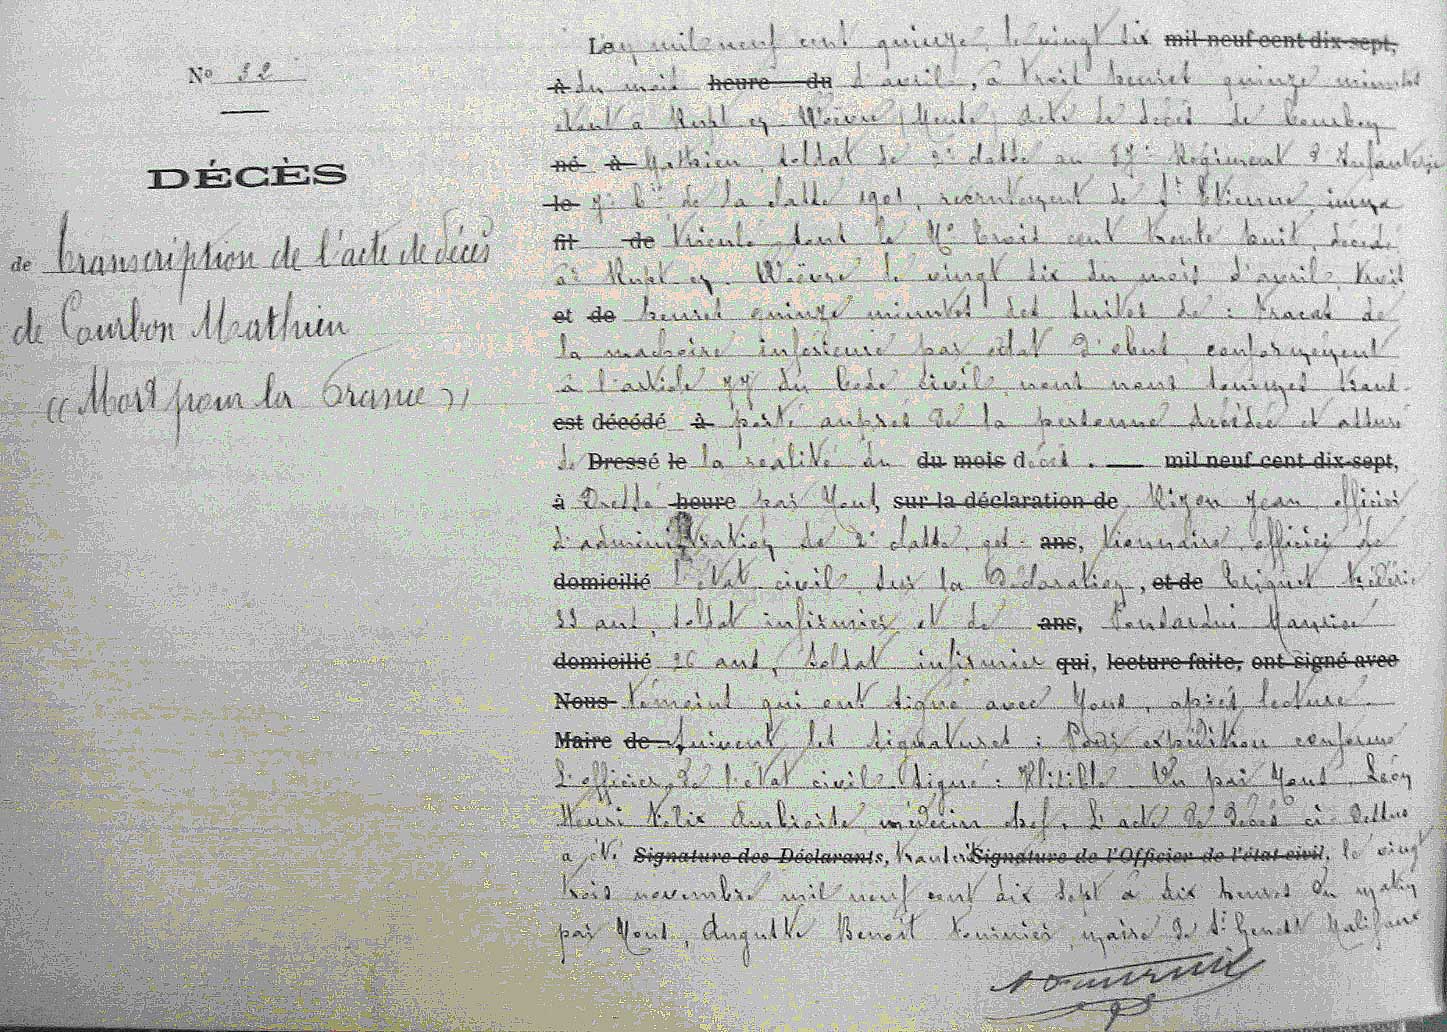 N° 32
DÉCÈS
de transcription de l'acte de décès
de Courbon Mathieu
« Mort pour la France »
L'an mil neuf cent quinze, le vingt six mil neuf cent dix-sept,
à du mois heure du d'avril, à trois heures quinze minutes
étant à Rupt en Woëvre (Meuse) acte de décès de Courbon
né à Mathieu, soldat de 2e classe au Régiment d'Infanterie
le 7e Cie de la classe 1901, recrutement de St Etienne, imma
fit de triculé, dont le No trois cent trente huit, décédé
à Rupt en Woëvre le vingt six du mois d'avril, trois
et de heures quinze minutes des suites de : fracas de
la machoire inférieure par éclat d'obus, conformément
à l'article 77 du Code civil, nous nous sommes trans-
est décédé à porté auprès de la personne décédée et assuré
de Dressé le la réalité du du mois décès. — mil neuf cent dix-sept,
à Dressé heure par Nous, sur la déclaration de Jean, officier
d'administration de 2e classe, ges- ans, tionnaire, officier de
domicilié l'état civil, sur la déclaration, et de Frédéric
33 ans, soldat infirmier et de ans, Maurice
domicilié 26 ans, soldat infirmier qui, lecture faite, ont signé avec
Nous témoins qui ont signé avec Nous, après lecture.
Maire de Suivent les signatures : Pour expédition conforme
L'officier de l'état civil. Signé : Illisible. Vu par Nous, Léon
Henri Félix médecin chef. L'acte de décès ci-dessus
a été Signature des Déclarants, transcrit Signature de l'Officier de l'état civil, le vingt
trois novembre mil neuf cent dix sept à dix heures du matin
par Nous, Auguste Benoît Fournier, maire de St Genest Malifaux
A Fournier